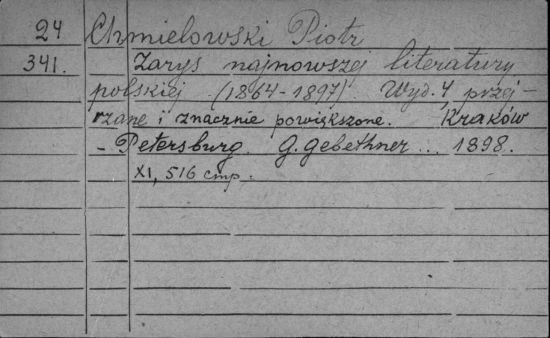 24 Chmielowski Piotr
341. Zarys najnowszej literatury
polskiej (1864-1897) Wyd. 4 przej-
rzane i znacznie powiększone. Kraków
- Petersburg. G. Gebethner... 1898.
XI, 516 cmp.